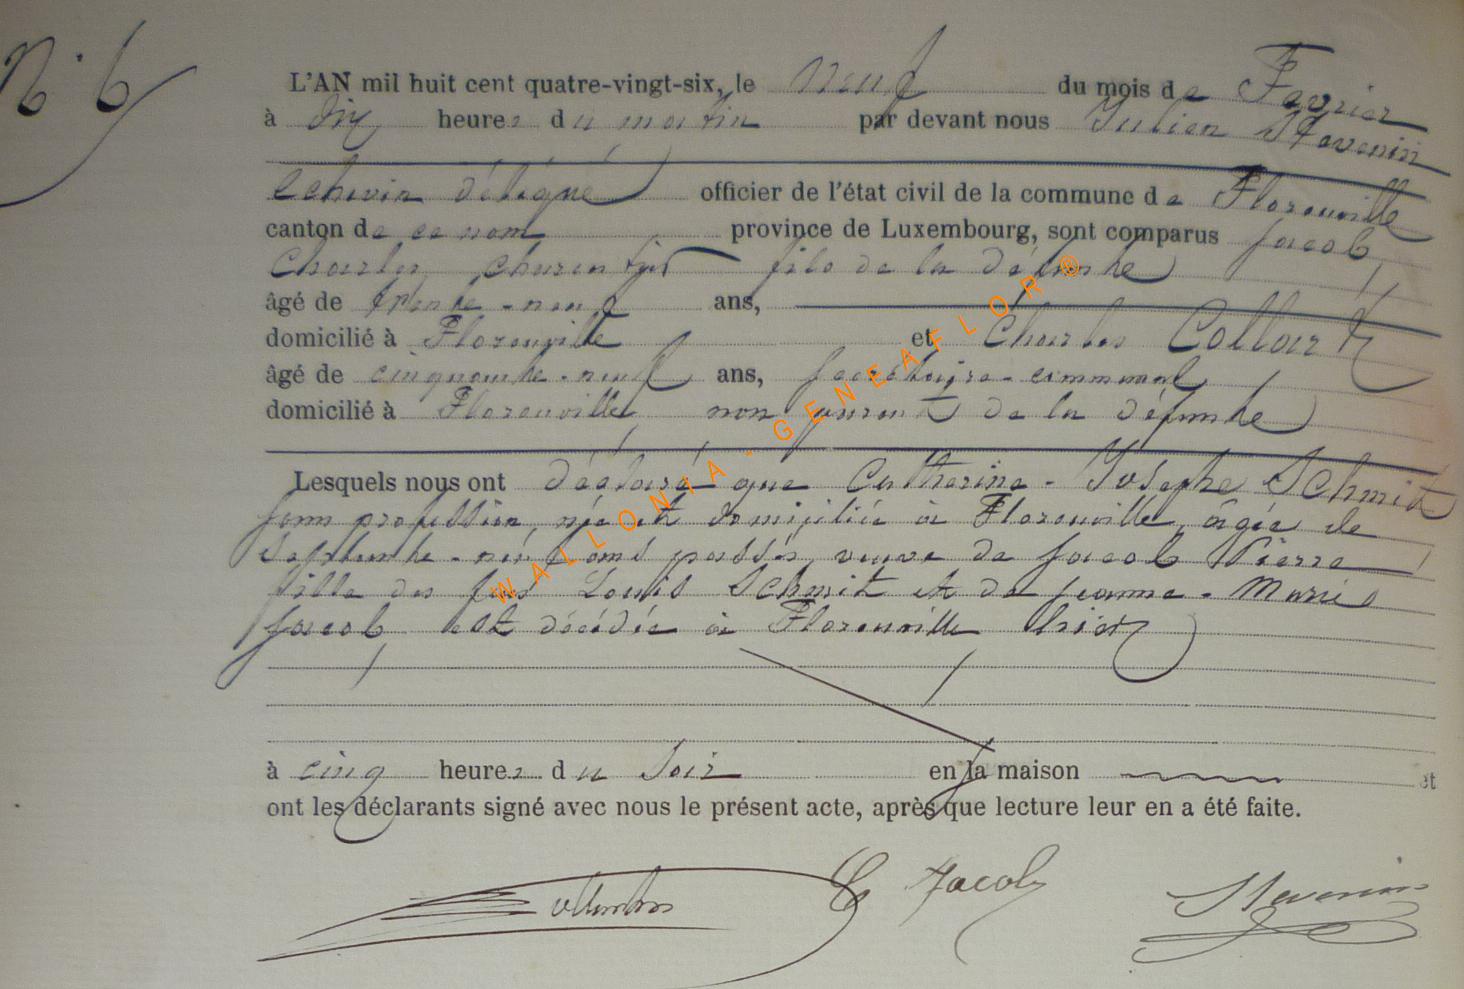 N° 6
L'AN mil huit cent quatre-vingt-six, le neuf du mois de Fevrier
à dix heures du matin par devant nous Julien Stevenin
Echevin délégué officier de l'état civil de la commune de Florenville
canton de ce nom province de Luxembourg, sont comparus Jacob
Charles, charpentier fils de la défunte
âgé de trente-neuf ans,
domicilié à Florenville et Charles Collart
âgé de cinquante-neuf ans, secrétaire-communal
domicilié à Florenville non parent de la défunte
Lesquels nous ont déclaré que Catherine-Josephe Schmit
sans profession, née et domiciliée à Florenville, âgée de
septante-neuf ans passés, veuve de Jacob Pierre
fille des feus Louis Schmit et de Jeanne-Marie
Jacob est décédée à Florenville hier
à cinq heures du soir en la maison et
ont les déclarants signé avec nous le présent acte, après que lecture leur en a été faite.
C Jacob Stevenin
WALLONIA - GENEAFLOR ®